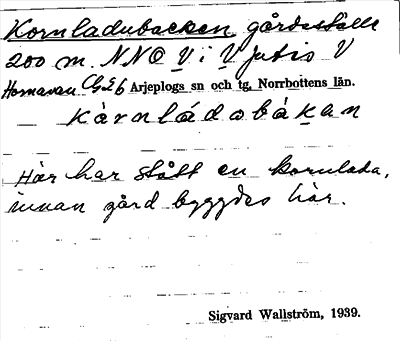 Kornladubacken gårdsställe
200 m. NNO V i V Jutis V
Hornavan C7E6 Arjeplogs sn och tg, Norrbottens län.
kàrnládobàkan
Här har stått en kornlada,
innan gård byggdes här.
Sigvard Wallström, 1939.